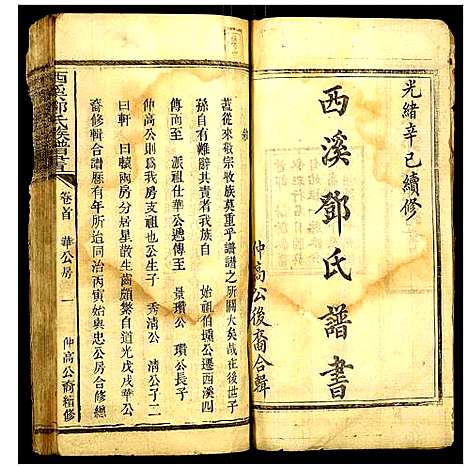 光緒辛巳續修
西溪鄧氏譜書
仲高公後裔合輯
敘
蓋從來敬宗收族莫重乎譜譜之所關大矣哉在後世子
孫自有難辭其責者 始祖伯壎公遷西溪四
傳而至 派祖仕華公遞傳至 景瓚公 瓚公長子
仲高公則爲我房支祖也公生子 秀淸公 淸公子二
曰軒 曰轅兩房分居星散生齒頗繁自道光戊戌華公
裔修輯合譜歷有年所這同治丙寅始與忠公房合修總
西溪鄧氏族譜書
卷首 華公房 一 仲高公裔續修